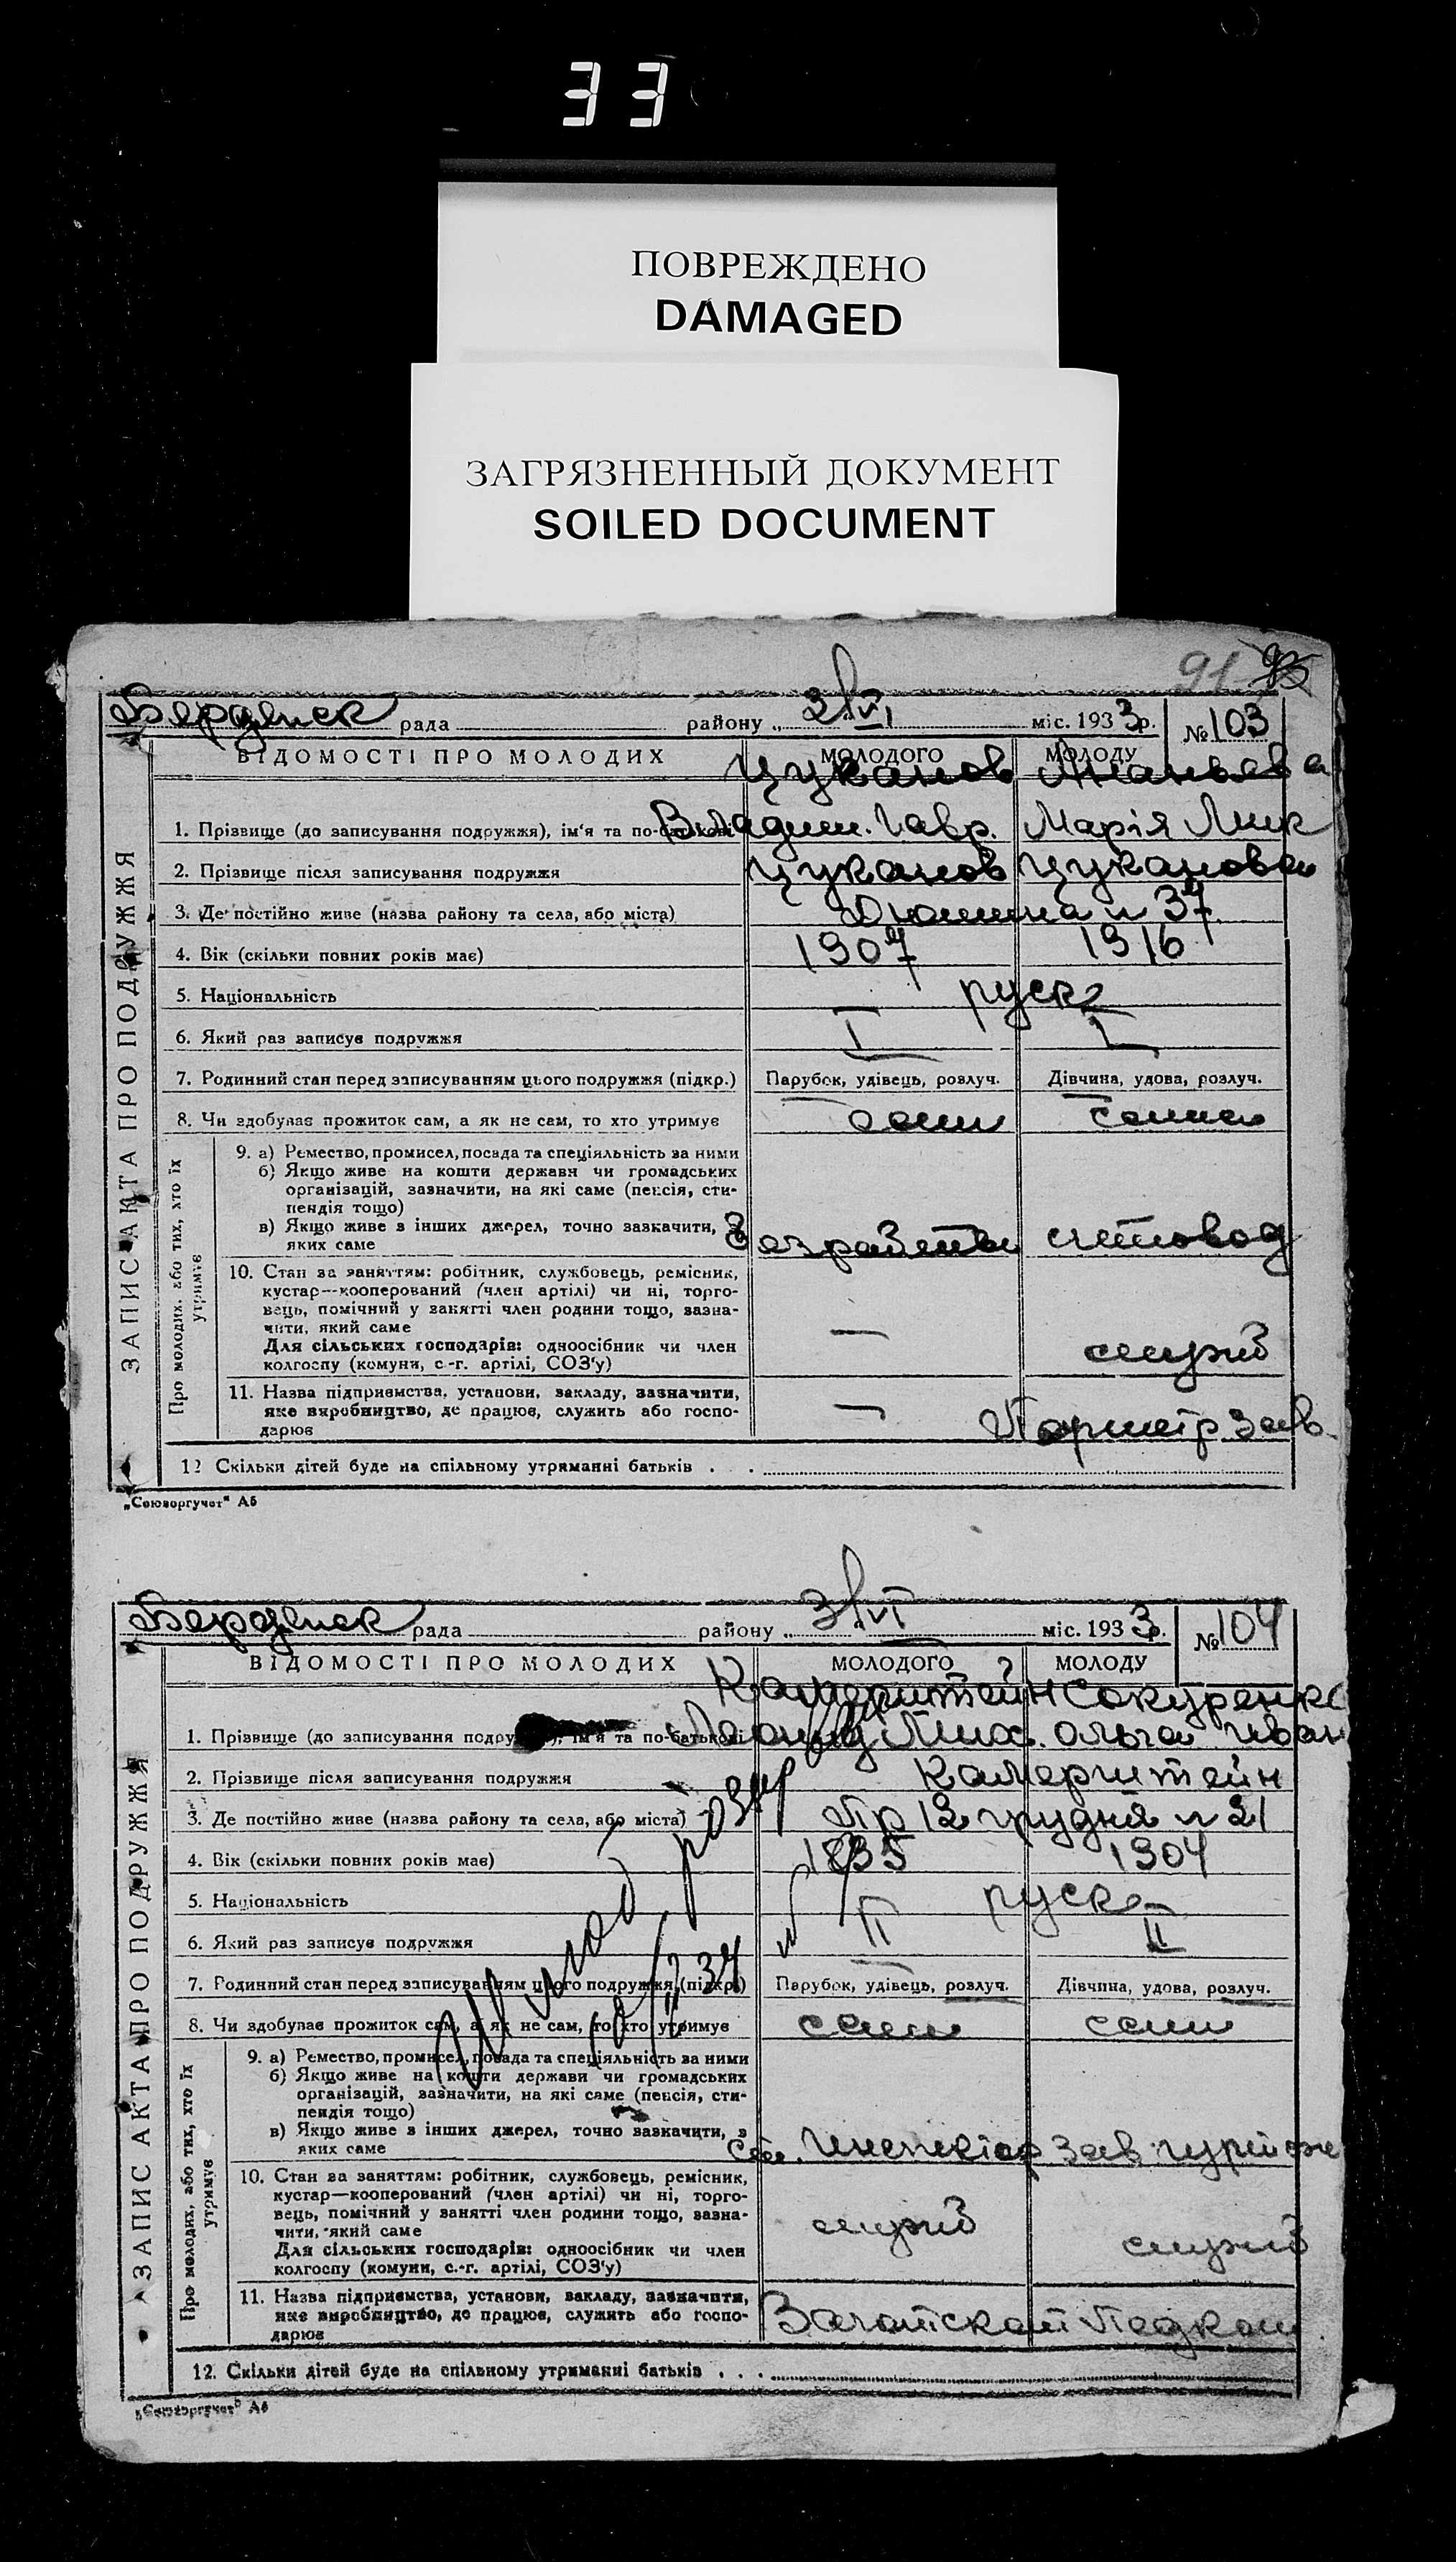 33
ПОВРЕЖДЕНО
DAMAGED
ЗАГРЯЗНЕННЫЙ ДОКУМЕНТ
SOILED DOCUMENT
91 95
Бердянск рада району „ 3/VI міс. 1933р. № 103
ЗАПИС АКТА ПРО ПОДРУЖЖЯ
ВІДОМОСТІ ПРО МОЛОДИХ МОЛОДОГО МОЛОДУ
Цуканов Ананьева
1. Прізвище (до записування подружжя), ім'я та по-батькові Владим. Гавр. Марія Мик
2. Прізвище після записування подружжя Цуканов Цуканова
3. Де постійно живе (назва району та села, або міста) 37
4. Вік (скільки повних років має) 1907 1916
5. Національність руск
6. Який раз записує подружжя I I
7. Родинний стан перед записуванням цього подружжя (підкр.) Парубок, удівець, розлуч. Дівчина, удова, розлуч.
8. Чи здобуває прожиток сам, а як не сам, то хто утримує сам сама
Про молодих, або тих, хто їх утримує
9. а) Ремество, промисел, посада та спеціяльність за ними
б) Якщо живе на кошти держави чи громадських
організацій, зазначити, на які саме (пенсія, сти-
пендія тощо)
в) Якщо живе з інших джерел, точно зазначити, з
яких саме счетовод
10. Стан за заняттям: робітник, службовець, ремісник,
кустар—кооперований (член артілі) чи ні, торго-
вець, помічний у занятті член родини тощо, зазна-
чити, який саме —
Для сільських господарів: одноосібник чи член
колгоспу (комуни, с.-г. артілі, СОЗ'у) служб
11. Назва підприємства, установи, закладу, зазначити,
яке виробництво, де працює, служить або госпо- —
дарює зав.
12 Скільки дітей буде на спільному утриманні батьків . . .
„Союзоргучет" А5
Бердянск рада району „ 3/VI міс. 1933р. № 104
ЗАПИС АКТА ПРО ПОДРУЖЖЯ
ВІДОМОСТІ ПРО МОЛОДИХ МОЛОДОГО МОЛОДУ
Камерштейн Сокуренко
1. Прізвище (до записування подружжя), ім'я та по-батькові Леонид Мих. Ольга Иван
2. Прізвище після записування подружжя Камерштейн
3. Де постійно живе (назва району та села, або міста) Пр 12 грудня н 21
4. Вік (скільки повних років має) 1895 1904
5. Національність руск
6. Який раз записує подружжя II II
7. Родинний стан перед записуванням цього подружжя (підкр.) Парубок, удівець, розлуч. Дівчина, удова, розлуч.
8. Чи здобуває прожиток сам, а як не сам, то хто утримує сам сам
Про молодих, або тих, хто їх утримує
9. а) Ремество, промисел, посада та спеціяльність за ними
б) Якщо живе на кошти держави чи громадських
організацій, зазначити, на які саме (пенсія, сти-
пендія тощо)
в) Якщо живе з інших джерел, точно зазначити, з
яких саме інспектор зав.
10. Стан за заняттям: робітник, службовець, ремісник,
кустар—кооперований (член артілі) чи ні, торго-
вець, помічний у занятті член родини тощо, зазна-
чити, який саме служб
Для сільських господарів: одноосібник чи член служб
колгоспу (комуни, с.-г. артілі, СОЗ'у)
11. Назва підприємства, установи, закладу, зазначити,
яке виробництво, де працює, служить або госпо-
дарює
12. Скільки дітей буде на спільному утриманні батьків . . .
„Союзоргучет" А5